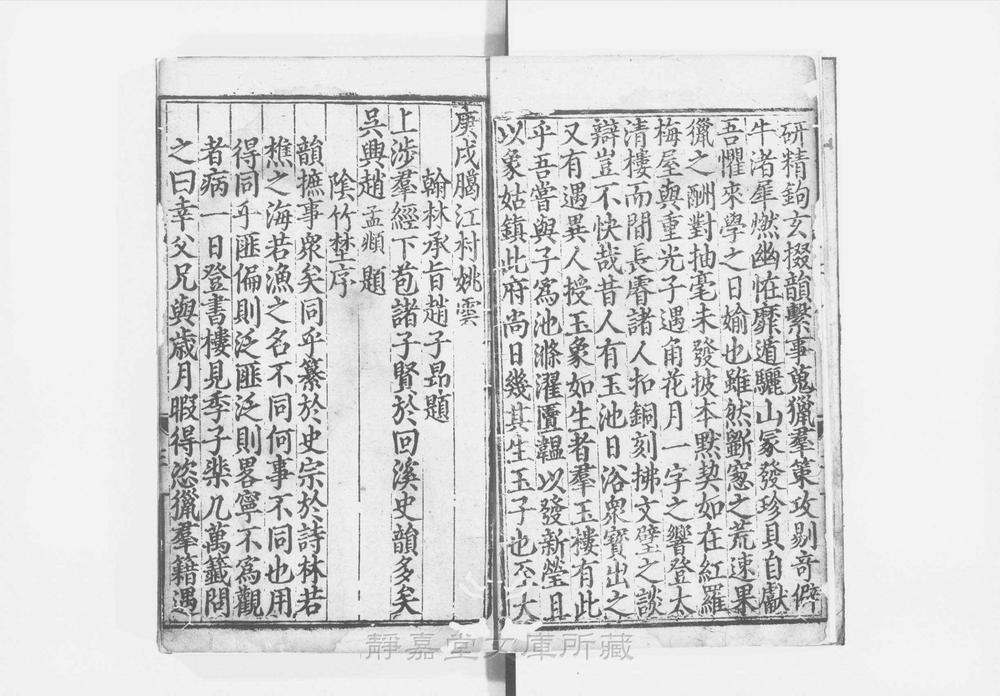 研精鉤玄掇韻繫事蒐獵羣策攻剔奇僻
牛渚犀燃幽怪靡遁驪山冢發珍貝自獻
吾懼來學之日媮也雖然斷窻之荒速果
獵之酬對抽毫未發披本默契如在紅羅
梅屋與重光子遇角花月一字之響登太
清樓而閒長睿諸人扣銅刻拂文壁之談
辯豈不快哉昔人有玉池日浴衆寶出之
又有遇異人授玉象如生者羣玉樓有此
乎吾嘗與子爲池滌濯匵韞以發新瑩且
以象姑鎮此府尚日幾其生玉子也至大
庚戌臈江村姚雲
翰林承旨趙子昂題
上涉羣經下苞諸子賢於回溪史韻多矣
吳興趙孟頫題
陰竹埜序
韻摭事衆矣同乎纂於史宗於詩林若
樵之海若漁之名不同何事不同也用
得同乎匪偏則泛匪泛則畧寧不爲觀
者病一日登書樓見季子棐几萬籤問
之曰幸父兄與歲月暇得恣獵羣籍遇
靜嘉堂文庫所藏